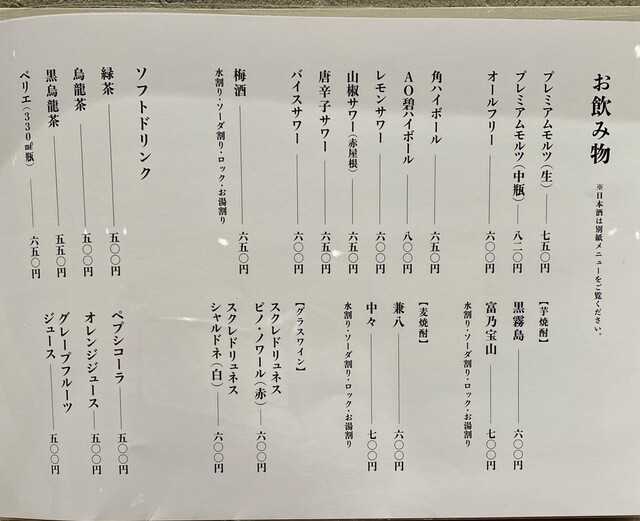 お飲み物
※日本酒は別紙メニューをご覧ください。
プレミアムモルツ（生）――七五〇円
プレミアムモルツ（中瓶）――八二〇円
オールフリー――六〇〇円
角ハイボール――六五〇円
AO碧ハイボール――八〇〇円
レモンサワー――六〇〇円
山椒サワー（赤屋根）――六五〇円
唐辛子サワー――六五〇円
バイスサワー――六〇〇円
梅酒――六五〇円
水割り・ソーダ割り・ロック・お湯割り
【芋焼酎】
黒霧島――六〇〇円
富乃宝山――七〇〇円
水割り・ソーダ割り・ロック・お湯割り
【麦焼酎】
兼八――六〇〇円
中々――七〇〇円
水割り・ソーダ割り・ロック・お湯割り
【グラスワイン】
スクレドリュネス
ピノ・ノワール（赤）――六〇〇円
スクレドリュネス
シャルドネ（白）――六〇〇円
ソフトドリンク
緑茶――五〇〇円
烏龍茶――五〇〇円
黒烏龍茶――五五〇円
ペリエ（330㎖瓶）――六五〇円
ペプシコーラ――五〇〇円
オレンジジュース――五〇〇円
グレープフルーツ
ジュース――五〇〇円